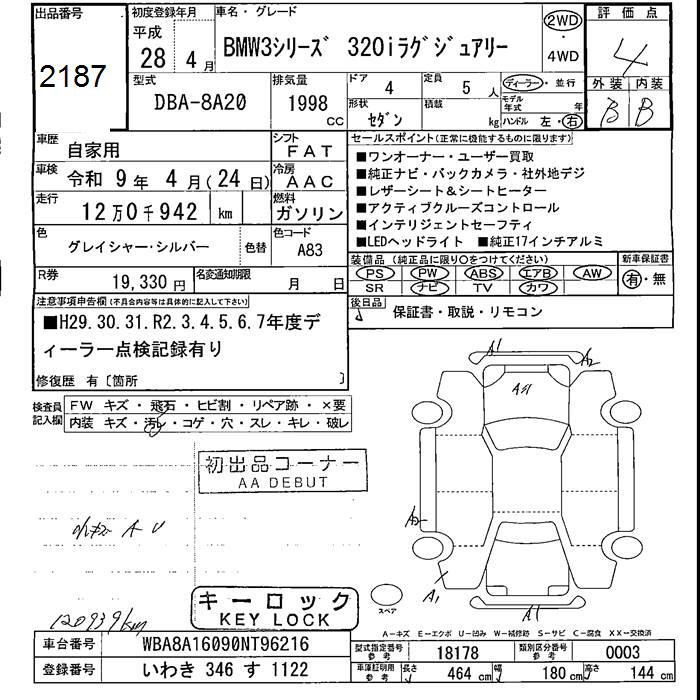 出品番号
2187
初度登録年月
平成
28 4 月
車名・グレード
BMW3シリーズ 320iラグジュアリー
2WD
・
4WD
評価点
4
外装 内装
B B
型式
DBA-8A20
排気量
1998
CC
ドア
4
定員
5 人
ディーラー・並行
形状
セダン
積載
kg
モデル年式 年
ハンドル 左・右
車歴
自家用
シフト
FAT
車検
令和 9 年 4 月(24 日)
冷房
AAC
走行
12万0千942 km
燃料
ガソリン
色
グレイシャー・シルバー
色替
色コード
A83
R券
19,330 円
名変通知期限
月 日
セールスポイント(正常に機能するものに限ります)
■ワンオーナー・ユーザー買取
■純正ナビ・バックカメラ・社外地デジ
■レザーシート&シートヒーター
■アクティブクルーズコントロール
■インテリジェントセーフティ
■LEDヘッドライト ■純正17インチアルミ
装備品(純正品に限り○をつけてください)
PS PW ABS エアB AW
SR ナビ TV カワ
新車保証書
有・無
後日品
保証書・取説・リモコン
注意事項申告欄(不具合内容等は具体的に記入して下さい)
■H29.30.31.R2.3.4.5.6.7年度デ
ィーラー点検記録有り
修復歴 有〔箇所 〕
検査員記入欄
FW キズ・飛石・ヒビ割・リペア跡・×要
内装 キズ・汚れ・コゲ・穴・スレ・キレ・破レ
初出品コーナー
AA DEBUT
A U
120939km
キーロック
KEY LOCK
A1
A2
A2
A1
A1
スペア
A－キズ E－エクボ U－凹み W－補修跡 S－サビ C－腐食 XX－交換済
車台番号
WBA8A16090NT96216
登録番号
いわき 346 す 1122
型式指定番号
参考
18178
類別区分番号
参考
0003
車庫証明用
参考
長さ
464 cm
幅
180 cm
高さ
144 cm